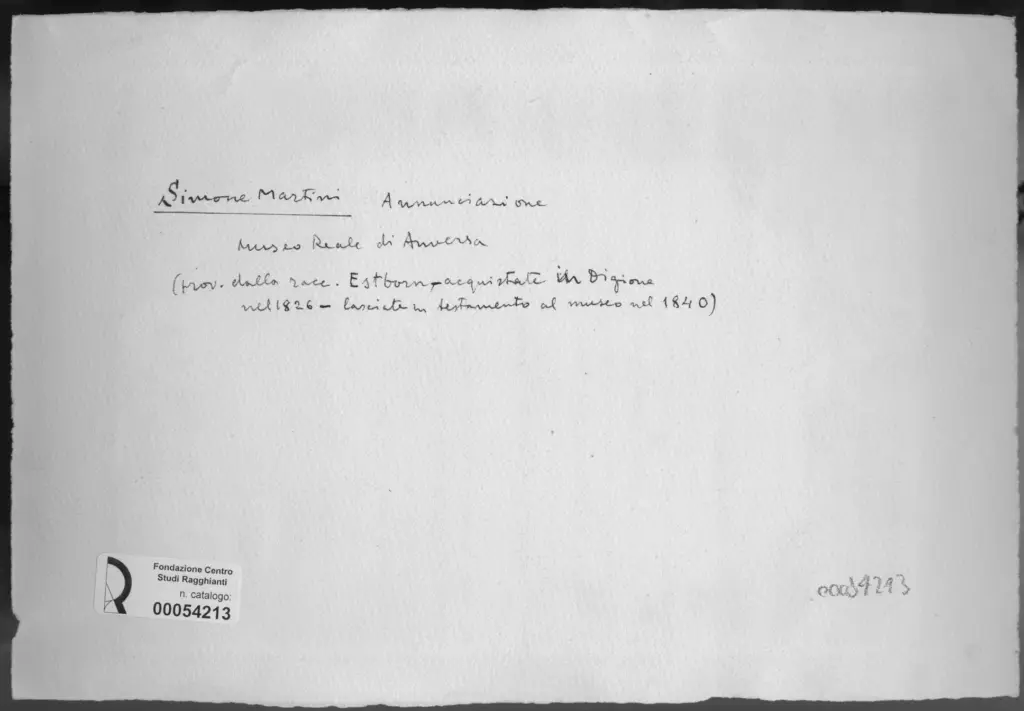 Simone Martini Annunciazione
Museo Reale di Anversa
(prov. dalla racc. Estborn - acquistate in Digione
nel 1826 - lasciate in testamento al museo nel 1840)
Fondazione Centro
Studi Ragghianti
n. catalogo:
00054213
00054213